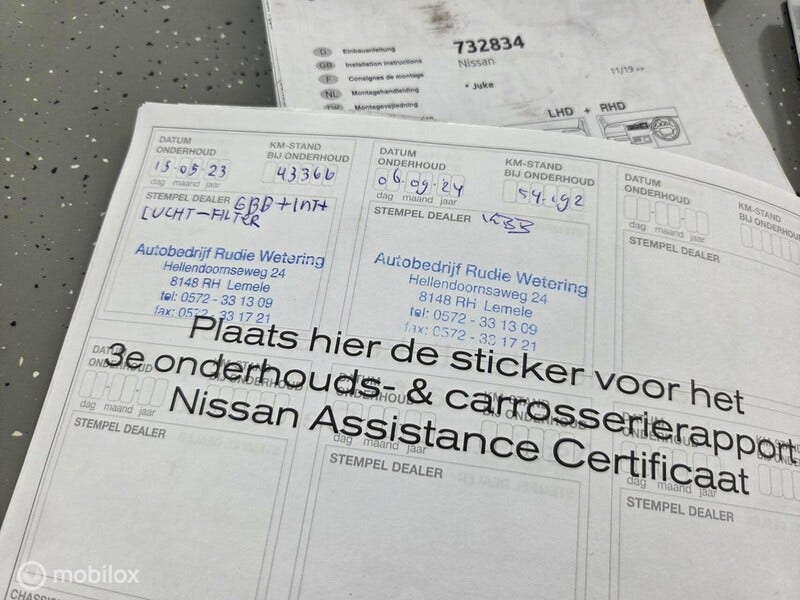 732834
Nissan
D Einbauanleitung
GB Installation instructions
F Consignes de montage
NL Montagehandleiding
DK Montagevejledning
11/19 >>
• Juke
LHD + RHD
DATUM ONDERHOUD
KM-STAND BIJ ONDERHOUD
15-05-23
43366
dag maand jaar
STEMPEL DEALER GBB+INT+
LUCHT-FILTER
Autobedrijf Rudie Wetering
Hellendoornsaweg 24
8148 RH Lemele
tel: 0572 - 33 13 09
fax: 0572 - 33 17 21
DATUM ONDERHOUD
KM-STAND BIJ ONDERHOUD
06-09-24
54.192
dag maand jaar
STEMPEL DEALER
Autobedrijf Rudie Wetering
Hellendoornsaweg 24
8148 RH Lemele
tel: 0572 - 33 13 09
fax: 0572 - 33 17 21
DATUM ONDERHOUD
KM-STAND BIJ ONDERHOUD
dag maand jaar
STEMPEL DEALER
Plaats hier de sticker voor het
3e onderhouds- & carrosserierapport
Nissan Assistance Certificaat
DATUM ONDERHOUD
dag maand jaar
STEMPEL DEALER
dag maand jaar
STEMPEL DEALER
dag maand jaar
STEMPEL DEALER
mobilox